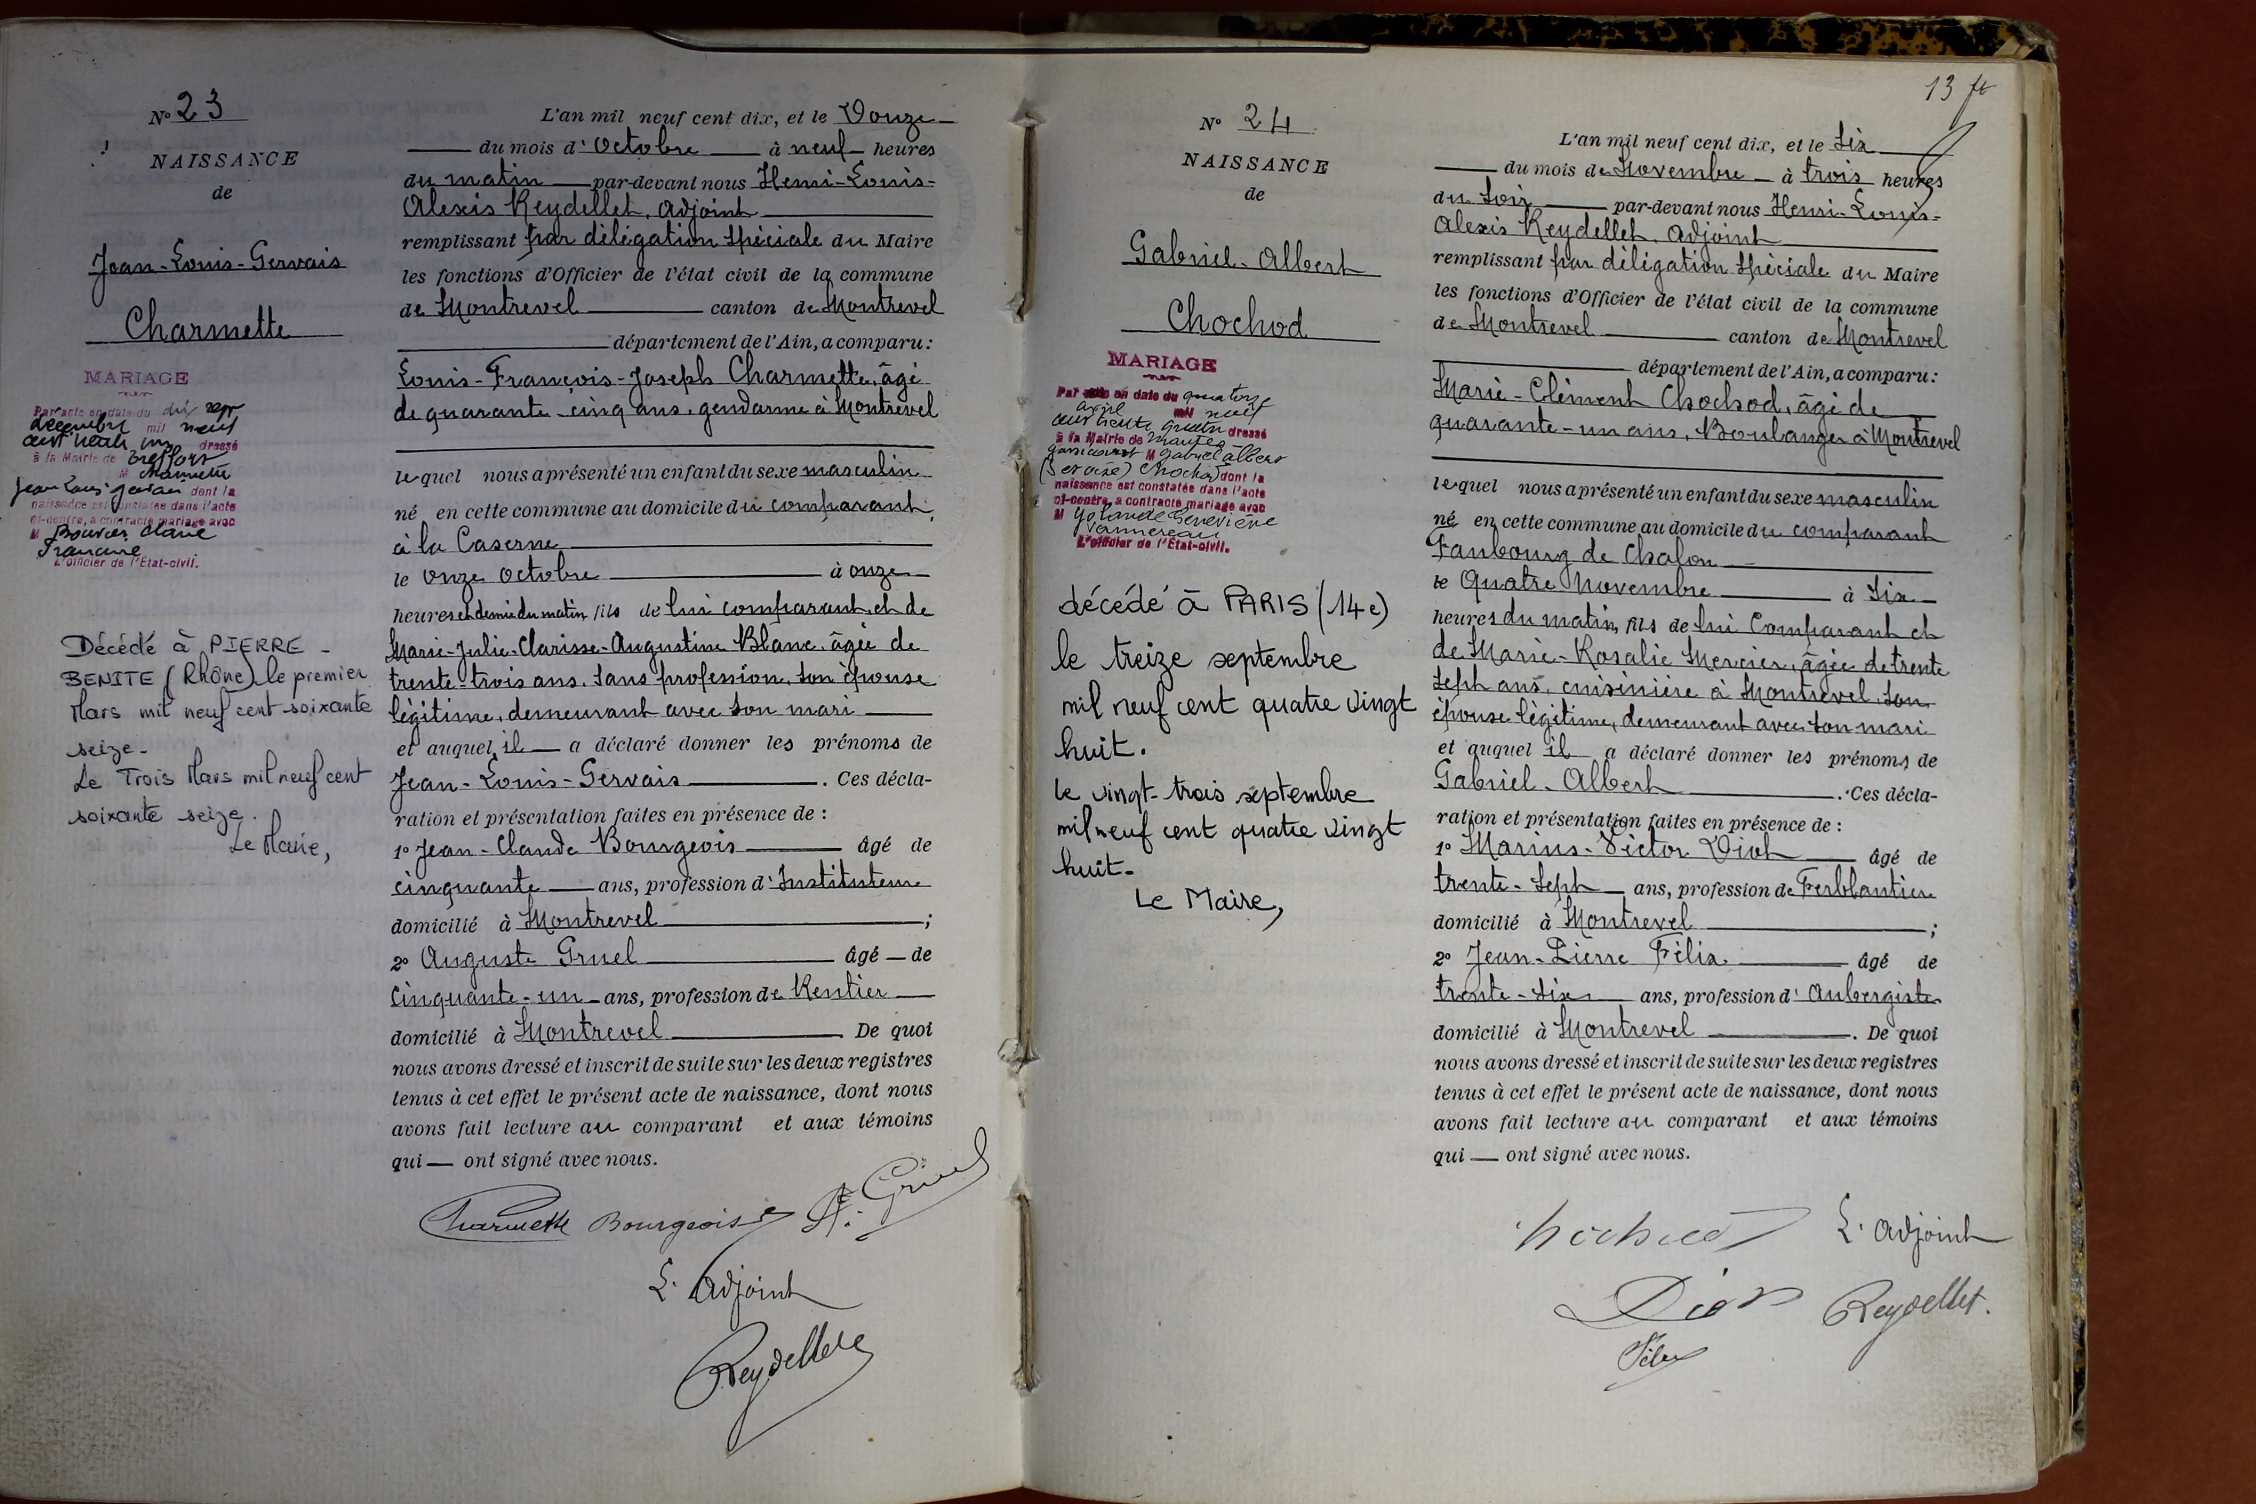 No 23
NAISSANCE
de
Jean-Louis-Gervais
Charmette
MARIAGE
Par acte en date du dix sept
décembre mil neuf
cent trente un dressé
à la Mairie de Treffort
M Charmette
Jean Louis Gervais dont la
naissance est constatée dans l'acte
ci-contre, a contracté mariage avec
M Bouvier Marie
Francine
L'officier de l'Etat-civil.
Décédé à PIERRE-
BENITE (Rhône) le premier
Mars mil neuf cent soixante
seize-
Le Trois Mars mil neuf cent
soixante seize.
Le Maire,
L'an mil neuf cent dix, et le Douze
du mois d'Octobre à neuf heures
du matin par-devant nous Henri-Louis-
Alexis Reydellet, adjoint
remplissant par délégation spéciale du Maire
les fonctions d'Officier de l'état civil de la commune
de Montrevel canton de Montrevel
département de l'Ain, a comparu:
Louis-François-Joseph Charmette, âgé
de quarante-cinq ans, gendarme à Montrevel
lequel nous a présenté un enfant du sexe masculin
né en cette commune au domicile du comparant,
à la Caserne
le onze octobre à onze
heures et demie du matin, fils de lui comparant et de
Marie-Julie-Clarisse-Augustine Blanc, âgée de
trente-trois ans, sans profession, son épouse
légitime, demeurant avec son mari
et auquel il a déclaré donner les prénoms de
Jean-Louis-Gervais. Ces décla-
ration et présentation faites en présence de :
1o Jean-Claude Bourgeois âgé de
cinquante ans, profession d'Instituteur
domicilié à Montrevel ;
2o Auguste Gruel âgé de
cinquante-un ans, profession de Rentier
domicilié à Montrevel. De quoi
nous avons dressé et inscrit de suite sur les deux registres
tenus à cet effet le présent acte de naissance, dont nous
avons fait lecture au comparant et aux témoins
qui ont signé avec nous.
Charmette Bourgeois A. Gruel
L'adjoint
Reydellet
13
No 24
NAISSANCE
de
Gabriel-Albert
Chochod
MARIAGE
Par acte en date du quatorze
avril mil neuf
cent trente quatre dressé
à la Mairie de Mantes
Gassicourt M Gabriel Albert
(S et Oise) Chochod dont la
naissance est constatée dans l'acte
ci-contre, a contracté mariage avec
M Yolande Geneviève
Vannereau
L'officier de l'Etat-civil.
décédé à PARIS (14e)
le treize septembre
mil neuf cent quatre vingt
huit.
le vingt-trois septembre
mil neuf cent quatre vingt
huit-
Le Maire,
L'an mil neuf cent dix, et le six
du mois de Novembre à trois heures
du soir par-devant nous Henri-Louis-
Alexis Reydellet, adjoint
remplissant par délégation spéciale du Maire
les fonctions d'Officier de l'état civil de la commune
de Montrevel canton de Montrevel
département de l'Ain, a comparu:
Marie-Clément Chochod, âgé de
quarante-un ans, Boulanger à Montrevel
lequel nous a présenté un enfant du sexe masculin
né en cette commune au domicile du comparant
Faubourg de Chalon
le Quatre Novembre à six
heures du matin, fils de lui comparant et
de Marie-Rosalie Mercier, âgée de trente
sept ans, cuisinière à Montrevel, son
épouse légitime, demeurant avec son mari
et auquel il a déclaré donner les prénoms de
Gabriel-Albert. Ces décla-
ration et présentation faites en présence de :
1o Marius-Victor Diot âgé de
trente-sept ans, profession de Ferblantier
domicilié à Montrevel ;
2o Jean-Pierre Félix âgé de
trente-six ans, profession d'Aubergiste
domicilié à Montrevel. De quoi
nous avons dressé et inscrit de suite sur les deux registres
tenus à cet effet le présent acte de naissance, dont nous
avons fait lecture au comparant et aux témoins
qui ont signé avec nous.
Chochod L'adjoint
Diot Reydellet.
Félix